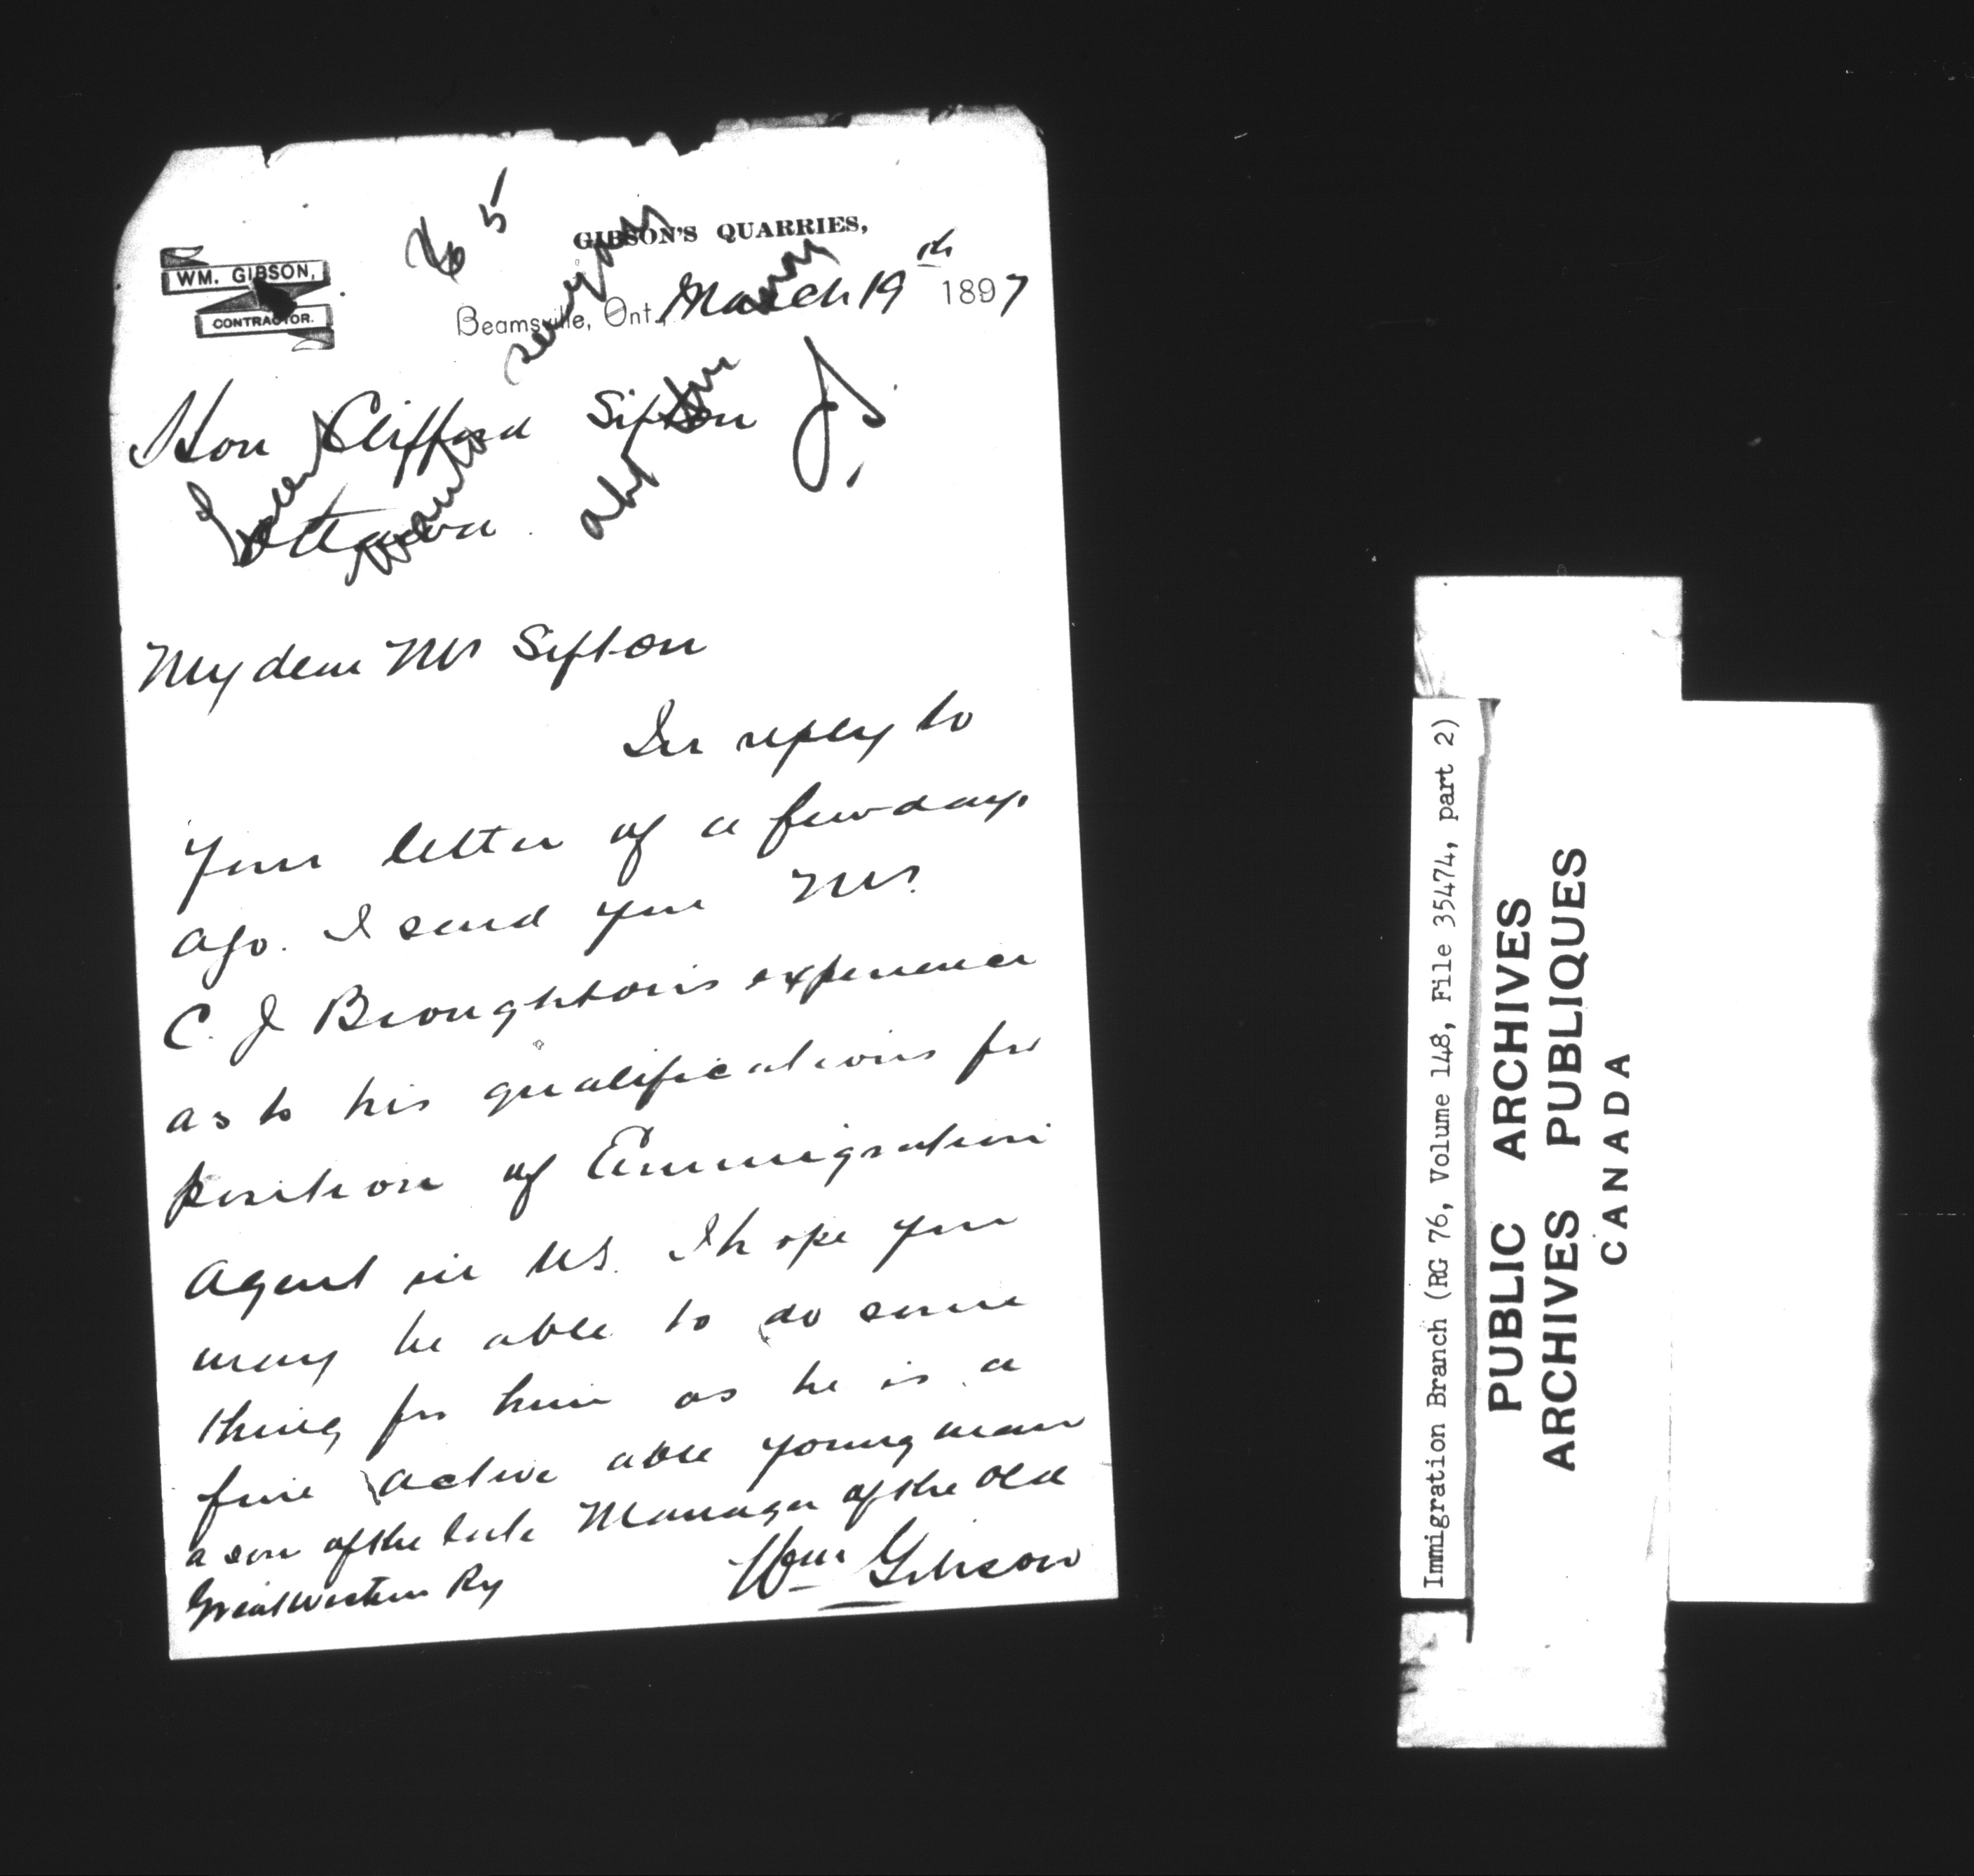 GIBSON'S QUARRIES,
WM. GIBSON,
CONTRACTOR.
Beamsville, Ont., March 19th 1897
Hon Clifford Sifton
Ottawa.
My dear Mr Sifton
In reply to
your letter of a few days
ago. I send you Mr.
C. J Broughton's experience
as to his qualifications for
position of Emmigration
Agent in US. I hope you
may be able to do some
thing for him as he is a
fine active able young man
a son of the late Manager of the old
Great Western Ry
Wm Gibson
Immigration Branch (RG 76, Volume 148, File 35474, part 2)
PUBLIC ARCHIVES
ARCHIVES PUBLIQUES
CANADA